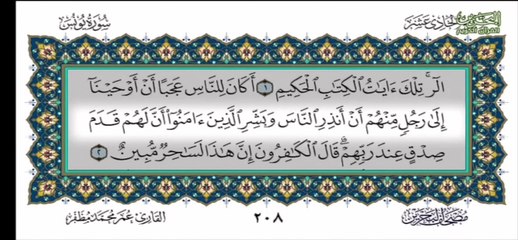 سورة يونس
الجزء الحادي عشر
الٓر ۚ تِلْكَ ءَايَٰتُ ٱلْكِتَٰبِ ٱلْحَكِيمِ ١ أَكَانَ لِلنَّاسِ عَجَبًا أَنْ أَوْحَيْنَآ
إِلَىٰ رَجُلٍ مِّنْهُمْ أَنْ أَنذِرِ ٱلنَّاسَ وَبَشِّرِ ٱلَّذِينَ ءَامَنُوٓا۟ أَنَّ لَهُمْ قَدَمَ
صِدْقٍ عِندَ رَبِّهِمْ ۗ قَالَ ٱلْكَٰفِرُونَ إِنَّ هَٰذَا لَسَٰحِرٌ مُّبِينٌ ٢
مصحف الحرمين
٢٠٨
القارئ عمر محمد مظفر